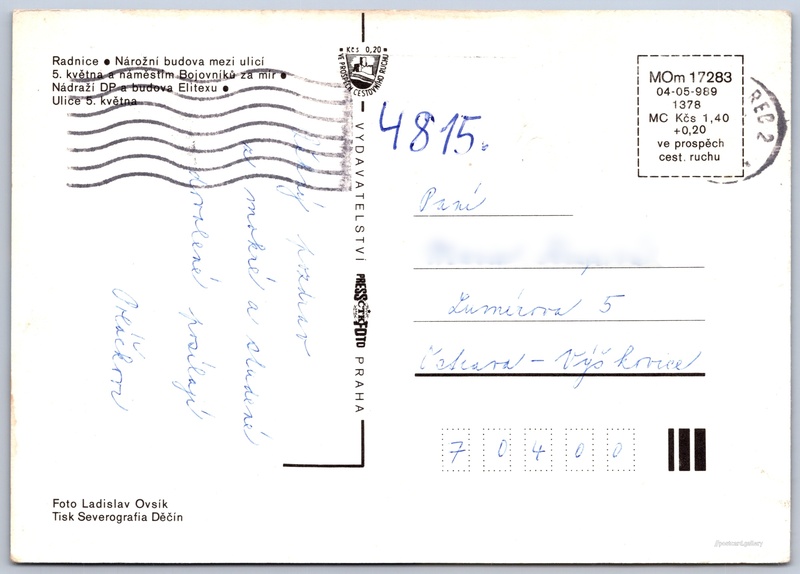 Radnice ● Nárožní budova mezi ulicí
5. května a náměstím Bojovníků za mír ●
Nádraží DP a budova Elitexu ●
Ulice 5. května
Kčs 0,20
VE PROSPĚCH CESTOVNÍHO RUCHU
4815.
MOm 17283
04-05-989
1378
MC Kčs 1,40
+0,20
ve prospěch
cest. ruchu
REC 2
VYDAVATELSTVÍ PRESSFOTO PRAHA
ČTK
pozdrav
z mokré a studené
dovolené posílají
Paní
Lumírova 5
Ostrava - Výškovice
70400
Foto Ladislav Ovsík
Tisk Severografia Děčín